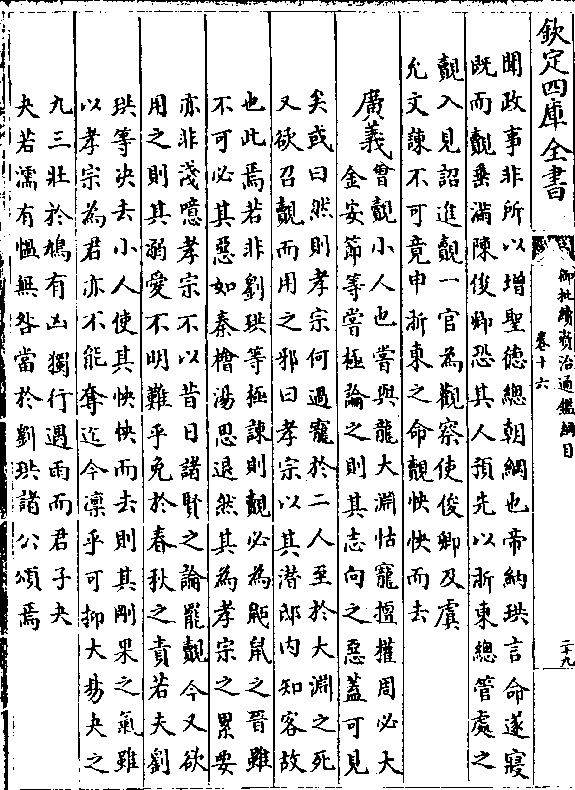 欽定四庫全書
御批續資治通鑑綱目
卷十六
二十九
聞政事非所以增聖德總朝綱也帝納珙言命遂寢
既而覿垂滿陳俊卿恐其人預先以浙東總管處之
覿入見詔進觀一官為觀察使俊卿及虞
允文諫不可竟申浙東之命覿怏怏而去
廣義曾覿小人也嘗與龍大淵怙寵擅權周必大
金安節等嘗極論之則其志向之惡蓋可見
矣或曰然則孝宗何過寵於二人至於大淵之死
又欲召覿而用之邪曰孝宗以其潛邸內知客故
也此焉若非劉珙等極諫則覿必為鼫鼠之晉雖
不可必其惡如秦檜湯思退然其為孝宗之累要
亦非淺噫孝宗不以昔日諸賢之論罷覿今又欲
用之則其溺愛不明難乎免於春秋之責若夫劉
珙等決去小人使其怏怏而去則其剛果之氣雖
以孝宗為君亦不能奪迄今凜乎可抑大易夬之
九三壯於鳩有凶獨行遇雨而君子夬
夬若濡有慍無咎當於劉珙諸公頌焉